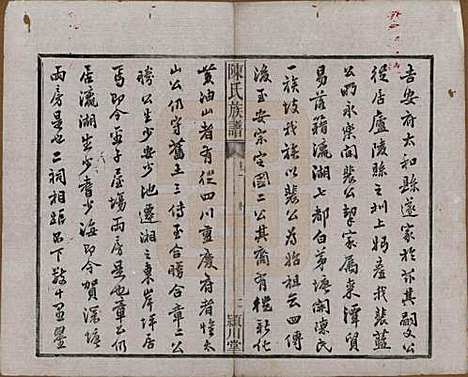 吉安府太和縣遂家於茶其嗣文公
從居廬陵縣之圳上婿產我裴藍
公明永樂間裴公挈家屬來潭貿
易落籍瀛湖七都白茅塘開陳氏
一族故我族以裴公為始祖云四傳
後至安宗定國二公其裔有從新化
陳氏族譜
卷二
潁川堂
黃油山者有從四川重慶府者惟太
山公仍守舊土三傳至合勝合章二公
勝公生少安少地遷湘之東岸坪居
焉即今孟子屋場兩房是也章公
居瀛湖生少耆少海即今賀潭塘
兩房是也二祠相距不下數十里疊